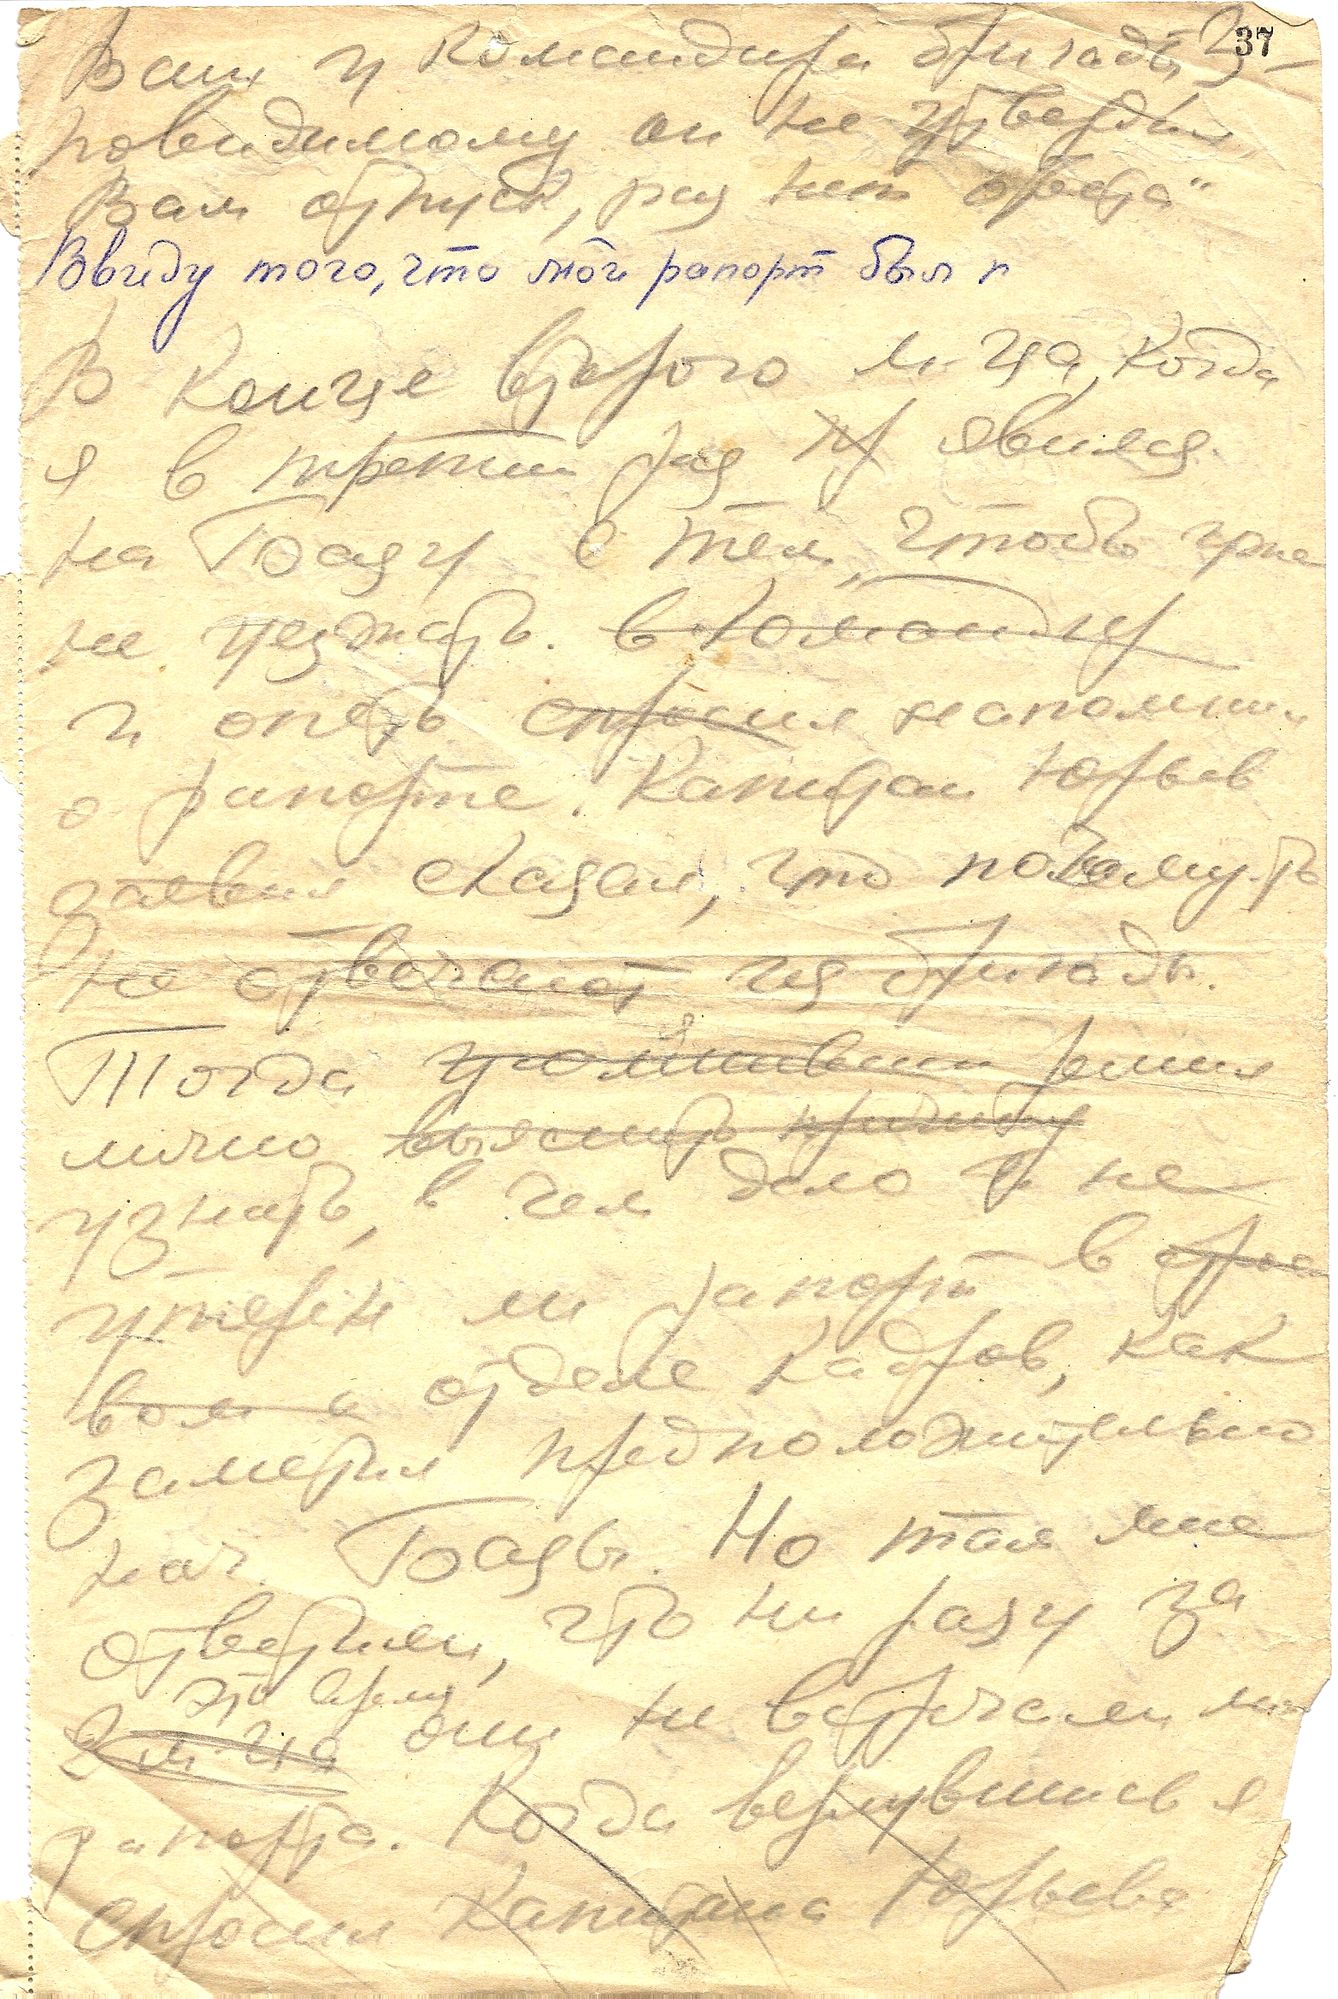 37
Ваш у командира бригады,
повидимому он не утвердил
Вам отпуск, раз нет ответа"
Ввиду того, что мой рапорт был п
В конце второго м-ца, когда
я в третий раз пр явился
на Базу с тем, чтобы
не уезжать. в команд
и опять спросил напомнил
о рапорте. Капитан Юрьев
заявил сказал, что почему то
не отвечают из бригады.
Тогда я решил
лично выяснить причину
узнать, в чем дело и не
утерян ли рапорт в
отделе кадров, как
заметил предположительно
нач. Базы. Но там мне
ответили, что ни разу за
это время
2 м-ца они не встречали
рапорта. Когда вернувшись я
спросил капитана Юрьева